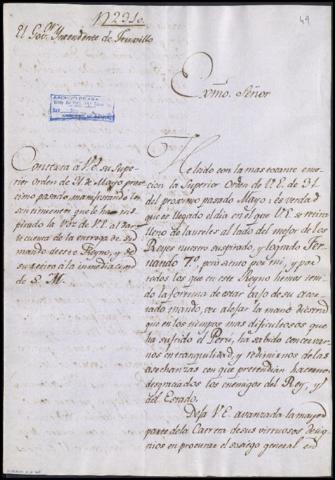 N. 231.
49
El Gov.r Intendente de Truxillo
Exmo. Señor
Contexta à V.E. su Supe-
rior Orden de 31 de Mayo proxi-
mo pasado, manifestando los
sentimientos que le ha ins-
pirado la voz de V.E. al dar-
se cuenta de la entrega de su
mando de este Reyno, y de
su retiro à la inmediacion
de S. M.
He leido con la mas tocante emo-
cion la Superior Orden de V.E. de 31
del proximo pasado Mayo: es verdad
que es llegado el dia en el que V.E. se retire
lleno de laureles al lado del mejor de los
Reyes nuestro suspirado, y logrado Fer-
nando 7.º pero siento por mi, y por
todos los que en este Reyno hemos teni-
do la fortuna de estar bajo de su acer-
tado mando, se aleje la mano diestra
que en los tiempos mas dificultosos que
ha sufrido el Perú, ha sabido conservar-
nos en tranquilidad, y redimirnos de las
asechanzas con que pretendian hacernos
desgraciados los enemigos del Rey, y
del Estado.
Deja V.E. avanzada la mayor
parte de la Carrera de sus virtuosos desig-
nios en procurar el sosiego general en